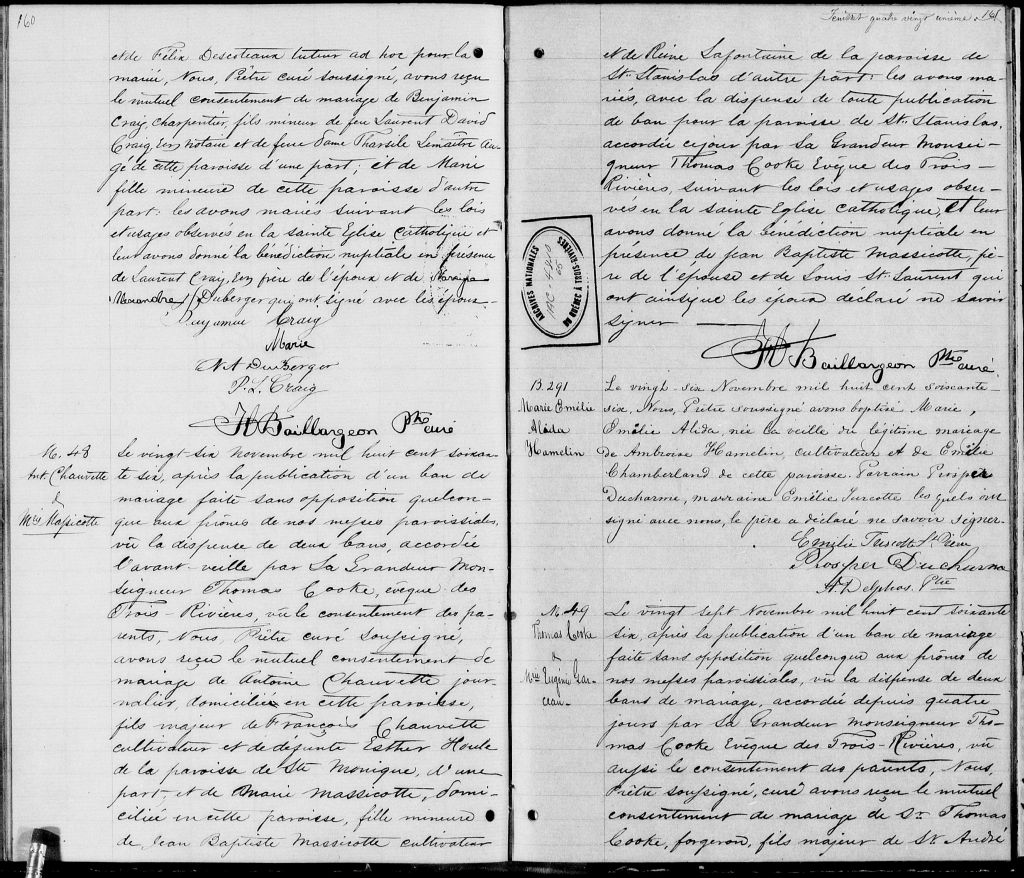 160
et de Félix Descoteaux tuteur ad hoc pour la
mariée, Nous, Prêtre curé soussigné, avons reçu
le mutuel consentement de mariage de Benjamin
Craig, charpentier, fils mineur de feu Laurent David
Craig, Ecr, Notaire et de feue Dame Tharsile Lemaître Au-
gé de cette paroisse d'une part; et de Marie
fille mineure de cette paroisse d'autre
part: les avons mariés suivant les lois
et usages observés en la sainte Eglise Catholique et
leur avons donné la bénédiction nuptiale en présence
de Laurent Craig, Ecr, frère de l'époux et de
Alexandre Duberger qui ont signé avec les époux.
Benjamin Craig
Marie
N A Duberger
P. L. Craig
Baillargeon Ptre curé
M. 48
Ant. Chauvette
&
Mie Massicotte
Le vingt-six Novembre mil huit cent soixan-
te six, après la publication d'un ban de
mariage faite sans opposition quelcon-
que aux prônes de nos messes paroissiales,
vû la dispense de deux bans, accordée
l'avant-veille par Sa Grandeur Mon-
seigneur Thomas Cooke, évêque des
Trois-Rivières, vû le consentement des pa-
rents, Nous, Prêtre curé soussigné,
avons reçu le mutuel consentement de
mariage de Antoine Chauvette jour-
nalier, domicilié en cette paroisse,
fils majeur de François Chauvette
cultivateur et de défunte Esther Houle
de la paroisse de Ste Monique, d'une
part, et de Marie Massicotte, domi-
ciliée en cette paroisse, fille mineure
de Jean Baptiste Massicotte cultivateur
Feuillet quatre vingt unième 161
et de Reine Lafontaine de la paroisse de
St. Stanislas d'autre part: les avons ma-
riés, avec la dispense de toute publication
de ban pour la paroisse de St. Stanislas,
accordée ce jour par Sa Grandeur Monsei-
gneur Thomas Cooke Evêque des Trois-
Rivières, suivant les lois et usages obser-
vés en la sainte Eglise catholique, et leur
avons donné la bénédiction nuptiale en
présence de Jean Baptiste Massicotte, pè-
re de l'épouse et de Louis St. Laurent qui
ont ainsi que les époux déclaré ne savoir
signer
Baillargeon Ptre curé
ARCHIVES NATIONALES
DU QUÉBEC À TROIS-RIVIÈRES
B. 291
Marie Emélie
Alida
Hamelin
Le vingt-six Novembre mil huit cent soixante-
six, Nous, Prêtre soussigné avons baptisé Marie,
Emélie Alida, née la veille du légitime mariage
de Ambroise Hamelin, cultivateur et de Emélie
Chamberland de cette paroisse. Parrain Prosper
Ducharme, marraine Emélie Turcotte les quels ont
signé avec nous, le père a déclaré ne savoir signer.
Emélie Turcotte St. Pierre
Prosper Ducharme
Ptre
M. 49
Thomas Cooke
&
Mie Eugénie Gar-
ceau
Le vingt sept Novembre mil huit cent soixante
six, après la publication d'un ban de mariage
faite sans opposition quelconque aux prônes de
nos messes paroissiales, vû la dispense de deux
bans de mariage, accordée depuis quatre
jours par Sa Grandeur Monseigneur Tho-
mas Cooke Evêque des Trois-Rivières, vû
aussi le consentement des parents, Nous,
Prêtre soussigné, curé avons reçu le mutuel
consentement de mariage de Sr. Thomas
Cooke, forgeron, fils majeur de Sr. André